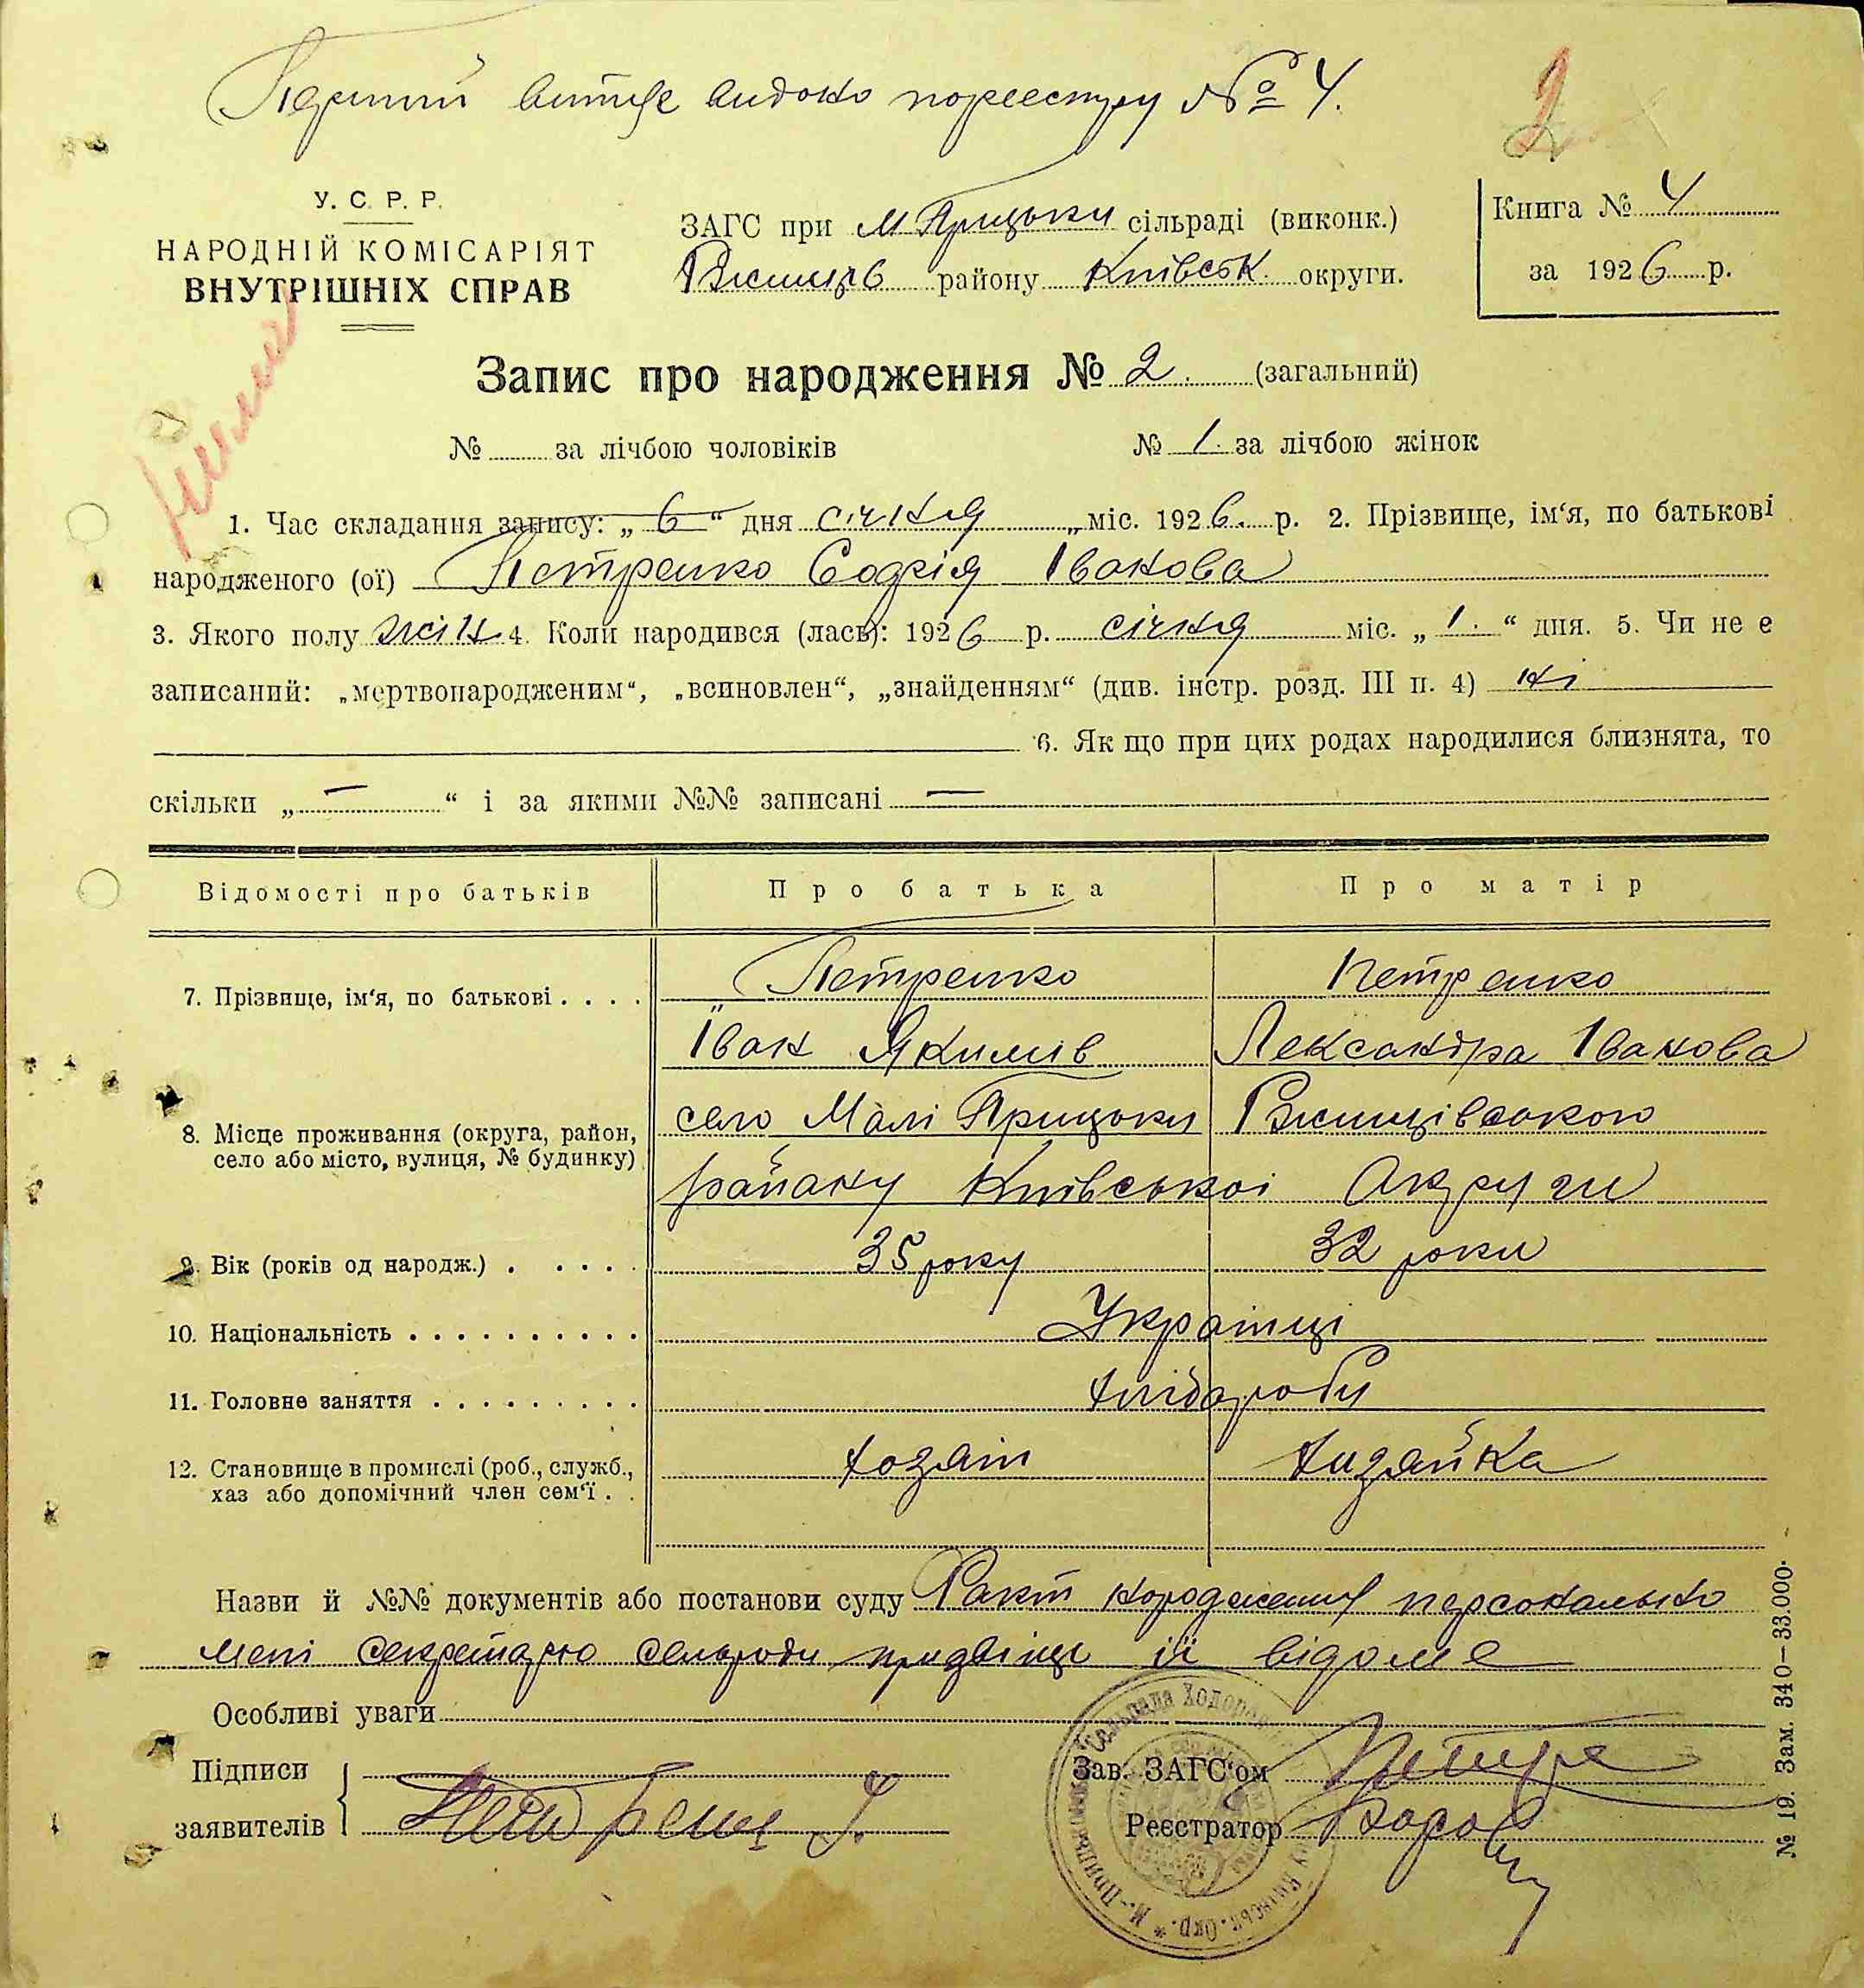 Перший витяг видоно пореестру № 4.
2
У. С. Р. Р.
НАРОДНІЙ КОМІСАРІЯТ
ВНУТРІШНІХ СПРАВ
ЗАГС при М Прицьки сільраді (виконк.)
Ржищів району Київськ. округи.
Книга № 4
за 1926 р.
Запис про народження № 2. (загальний)
№ за лічбою чоловіків № 1. за лічбою жінок
1. Час складання запису: „ 6 “ дня січня міс. 1926. р. 2. Прізвище, ім‘я, по батькові
народженого (ої) Петренко Софія Іванова
3. Якого полу жін 4. Коли народився (лась): 1926 р. січня міс. „ 1. “ дня. 5. Чи не є
записаний: „мертвонародженим“, „всиновлен“, „знайденням“ (див. інстр. розд. III п. 4) ні
6. Як що при цих родах народилися близнята, то
скільки „ — “ і за якими №№ записані —
Відомості про батьків Про батька Про матір
7. Прізвище, ім‘я, по батькові . . . . Петренко Петренко
Іван Якимів Лександра Іванова
8. Місце проживання (округа, район, село Малі Прицьки Ржищівського
село або місто, вулиця, № будинку) району Київської Округи
9. Вік (років од народж.) . . . . . 35 року 32 роки
10. Національність . . . . . . . . . . Українці
11. Головне заняття . . . . . . . . . хлібароби
12. Становище в промислі (роб., служб., хозяїн хизяйка
хаз або допомічний член сем‘ї . .
Назви й №№ документів або постанови суду Факт народження персонально
мені секретарю сельради придвінці її відоме
Особливі уваги
Підписи
заявителів
Зав. ЗАГС‘ом
Реєстратор
М.-Прицьковська Сельрада Ходоров Київськ. Окр.
№ 19. Зам. 340—33.000.